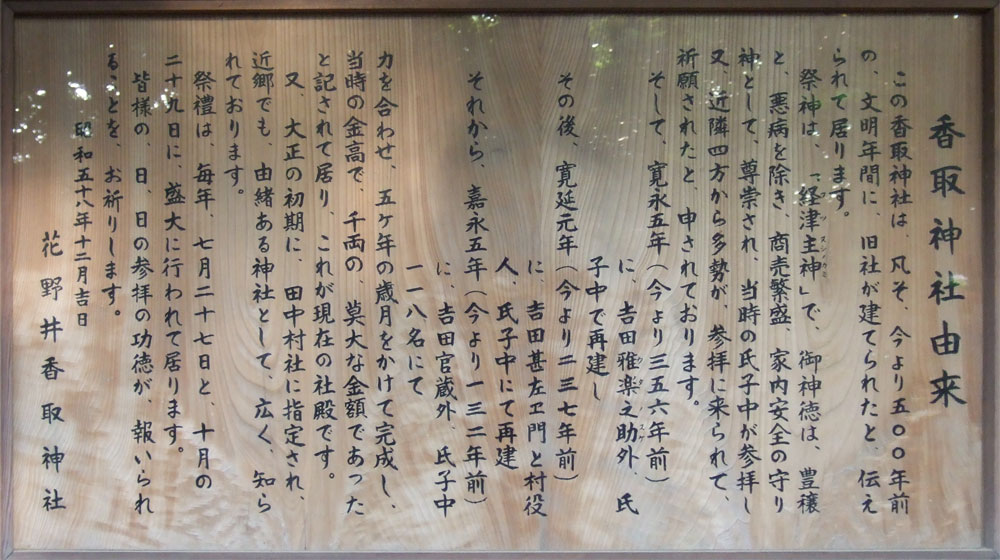 香取神社由来
この香取神社は、凡そ、今より五〇〇年前
の、文明年間に、旧社が建てられたと、伝え
られて居ります。
祭神は、「経津主神」で、御神徳は、豊穣
と、悪病を除き、商売繁盛、家内安全の守り
神として、尊崇され、当時の氏子中が参拝し
又、近隣四方から多勢が、参拝に来られて、
祈願されたと、申されております。
そして、寛永五年（今より三五六年前）
に、吉田雅楽之助外、氏
子中で再建し
その後、寛延元年（今より二三七年前）
に、吉田甚左ヱ門と村役
人、氏子中にて再建
それから、嘉永五年（今より一三二年前）
に、吉田官蔵外、氏子中
一一八名にて
力を合わせ、五ヶ年の歳月をかけて完成し、
当時の金高で、千両の、莫大な金額であった
と記されて居り、これが現在の社殿です。
又、大正の初期に、田中村社に指定され、
近郷でも、由緒ある神社として、広く、知ら
れております。
祭禮は、毎年、七月二十七日と、十月の
二十九日に、盛大に行われて居ります。
皆様の、日、日の参拝の功徳が、報いられ
ることを、お祈りします。
昭和五十八年十二月吉日
花野井香取神社